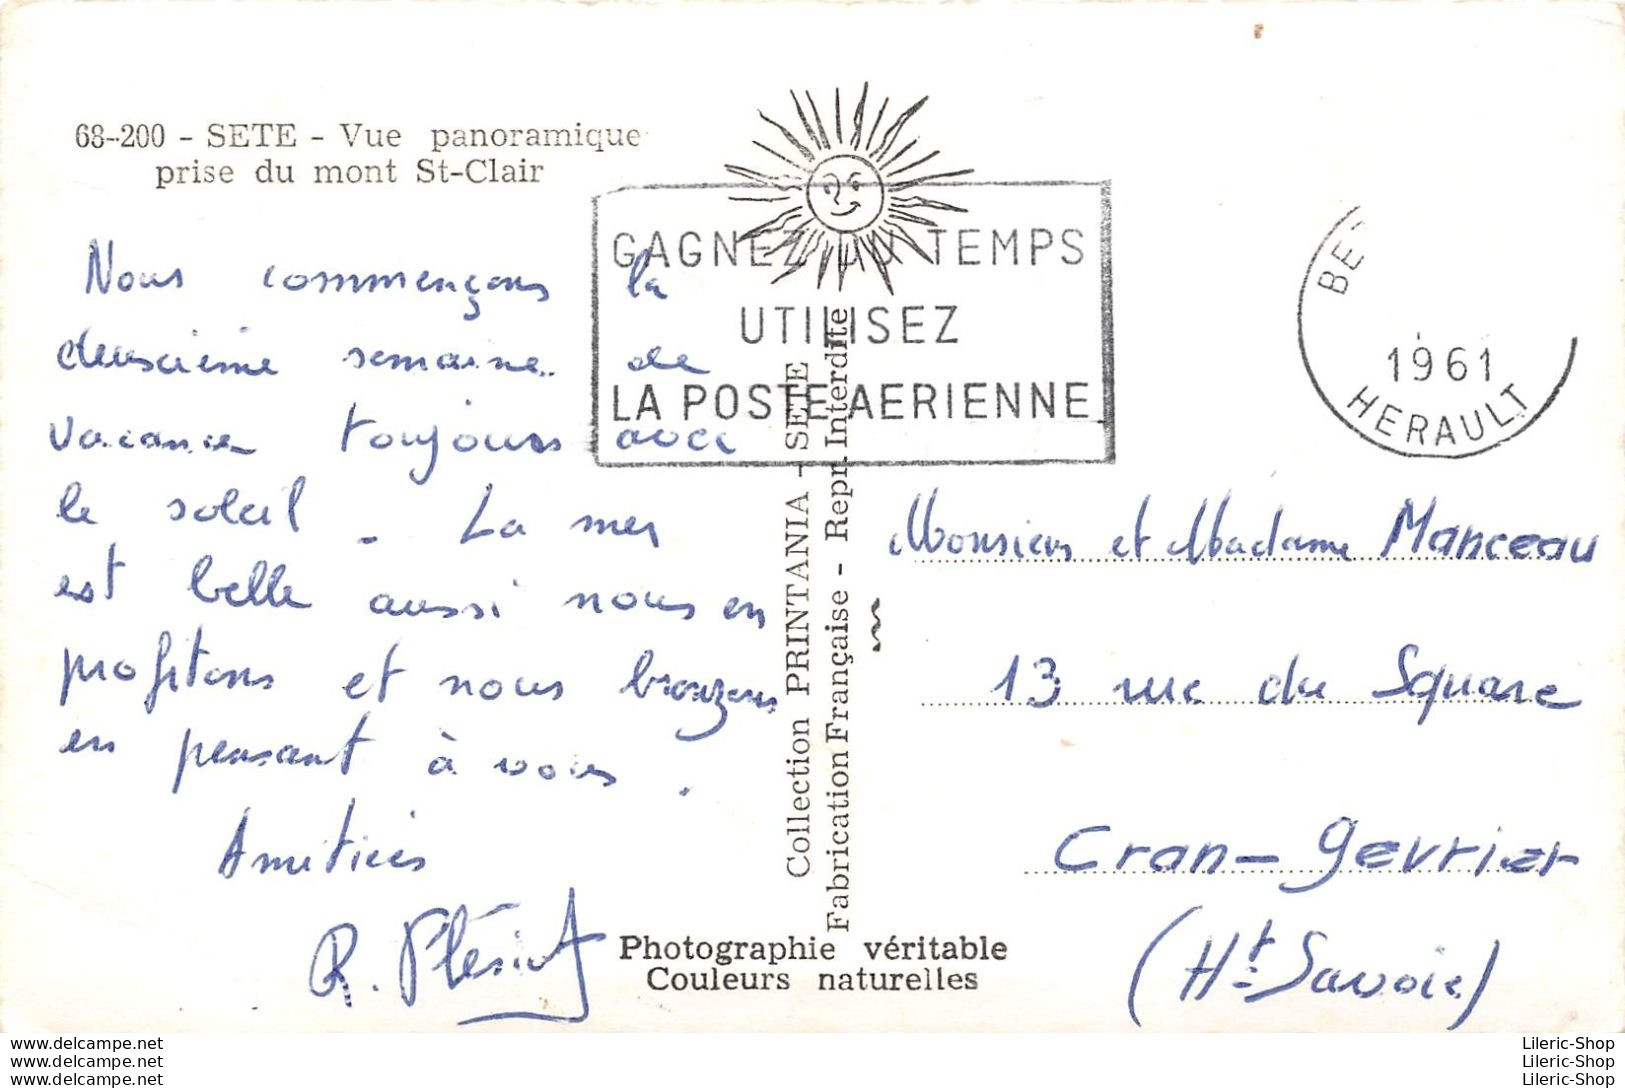 68-200 - SETE - Vue panoramique
prise du mont St-Clair
Nous commençons la
deuxième semaine de
vacance toujours avec
le soleil. La mer
est belle aussi nous en
profitons et nous bronzons
en pensant à vous.
Amitiés
R.
GAGNEZ DU TEMPS
UTILISEZ
LA POSTE AERIENNE
1961
HERAULT
Collection PRINTANIA - SETE
Fabrication Française - Repr. Interdite
Monsieur et Madame Manceau
13 rue du Square
Cran-Gevrier
(Ht-Savoie)
Photographie véritable
Couleurs naturelles
www.delcampe.net
www.delcampe.net
www.delcampe.net
Lileric-Shop
Lileric-Shop
Lileric-Shop